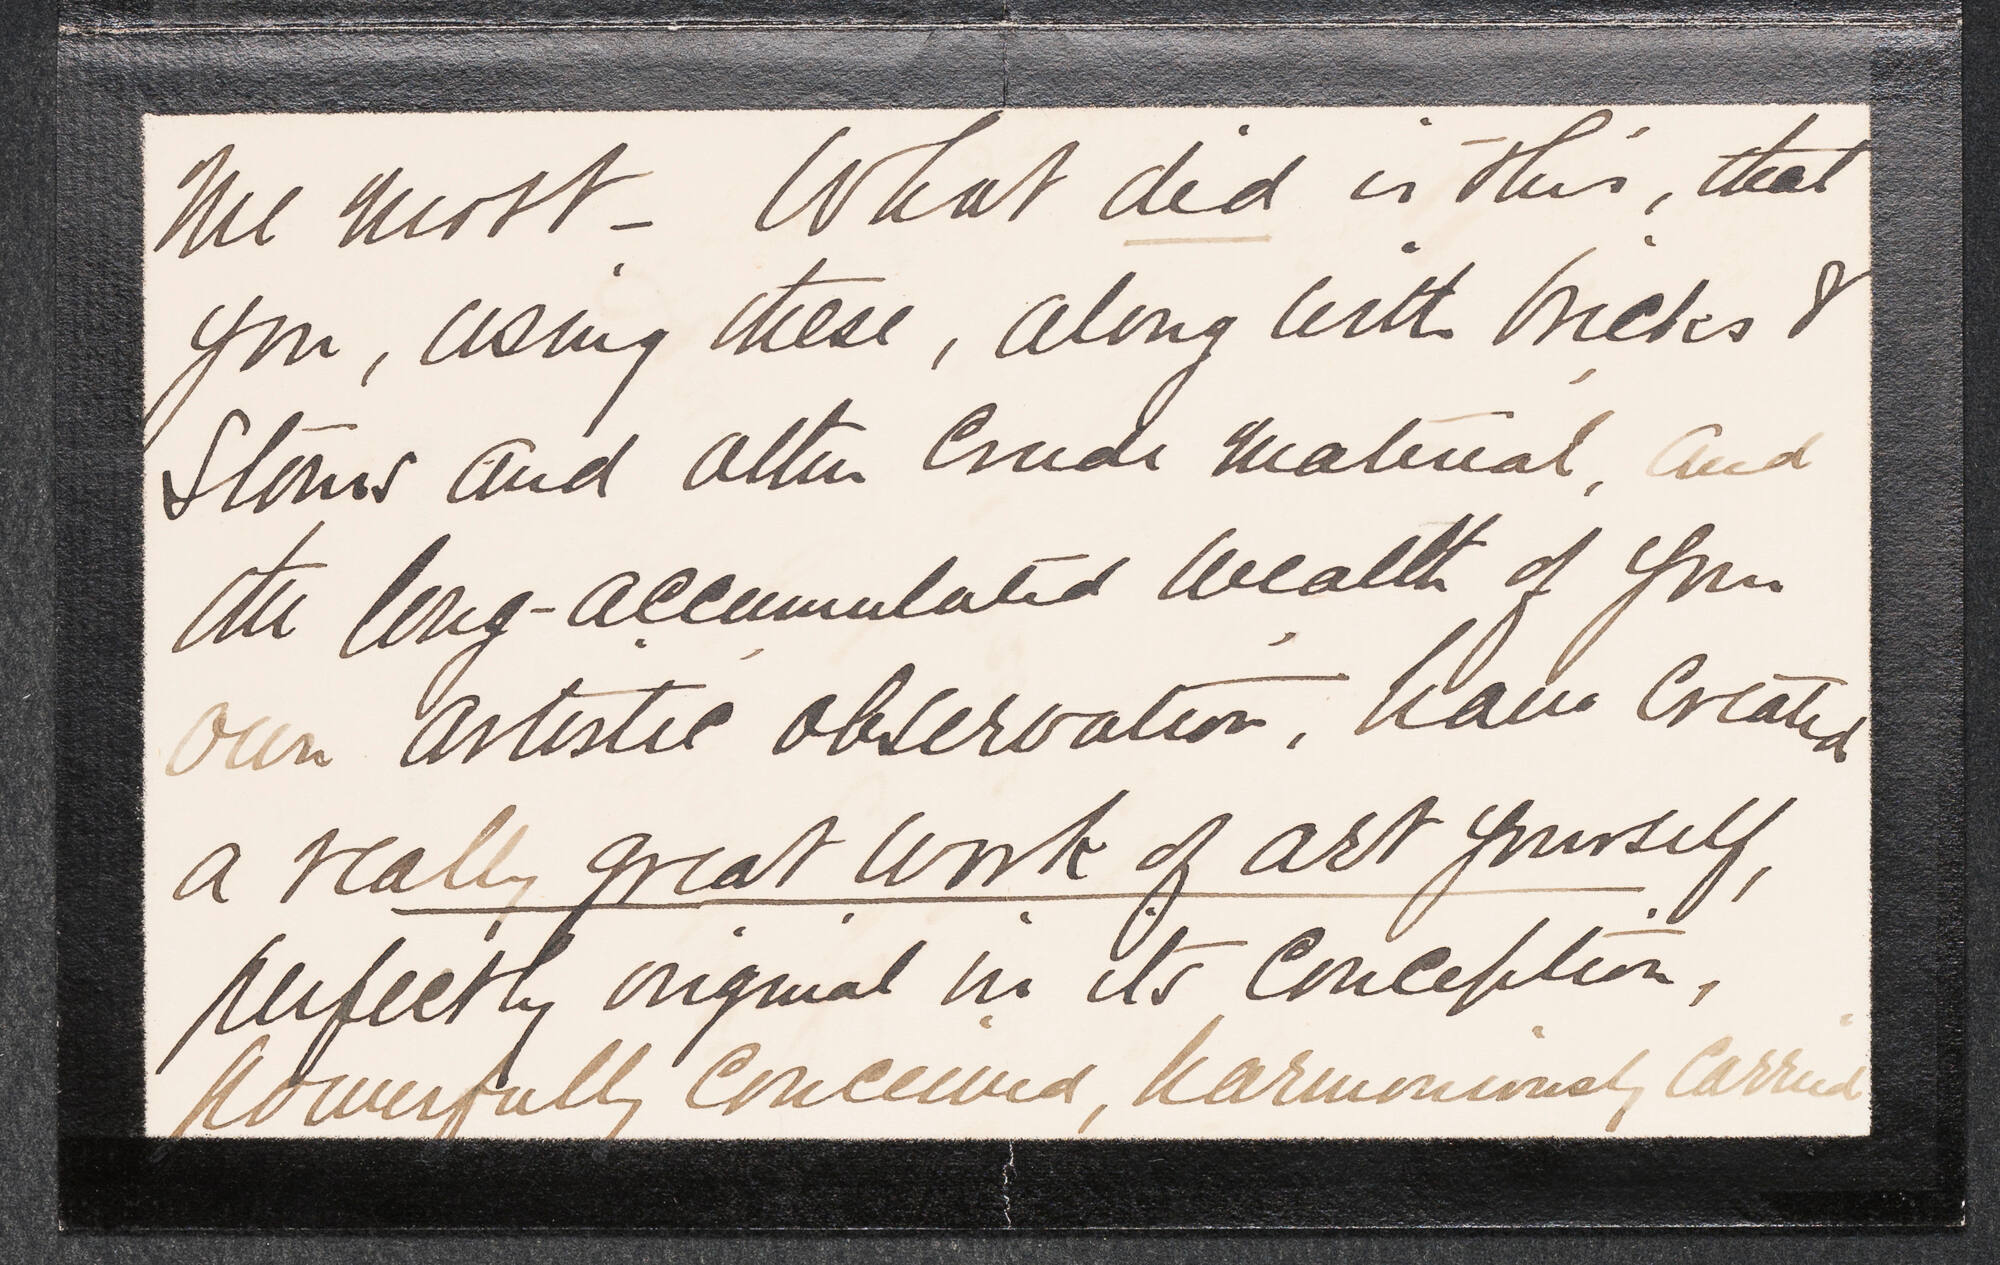 me most – What did is this, that
you, using these, along with bricks &
stones and other crude material, and
the long-accumulated wealth of your
own artistic observation, have created
a really great work of art yourself,
perfectly original in its conception,
powerfully conceived, harmoniously carried